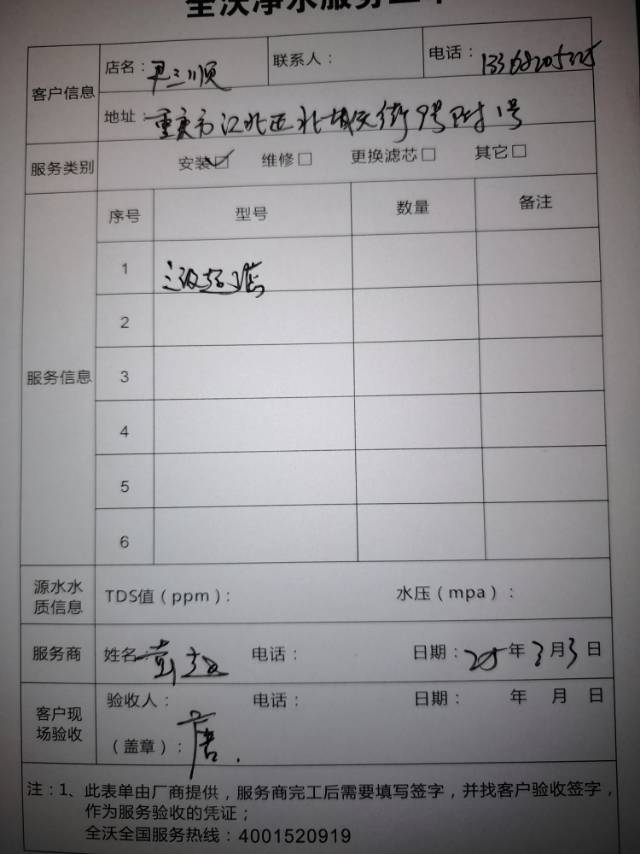 全沃净水服务工单
客户信息
店名：尹三顺
联系人：
电话：
地址 重庆市江北区北城天街9号附1号
服务类别
安装☑ 维修□ 更换滤芯□ 其它□
服务信息
序号 型号 数量 备注
1
2
3
4
5
6
源水水质信息
TDS值（ppm）： 水压（mpa）：
服务商
姓名 电话： 日期：25年3月3日
客户现场验收
验收人： 电话： 日期： 年 月 日
（盖章）：唐
注：1、此表单由厂商提供，服务商完工后需要填写签字，并找客户验收签字，
作为服务验收的凭证；
全沃全国服务热线：4001520919